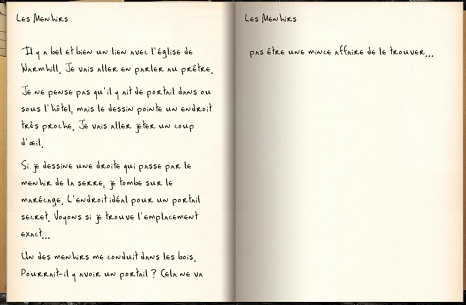 Les Menhirs
Il y a bel et bien un lien avec l'église de
Warmhill. Je vais aller en parler au prêtre.
Je ne pense pas qu'il y ait de portail dans ou
sous l'hôtel, mais le dessin pointe un endroit
très proche. Je vais aller jeter un coup
d'œil.
Si je dessine une droite qui passe par le
menhir de la serre, je tombe sur le
marécage. L'endroit idéal pour un portail
secret. Voyons si je trouve l'emplacement
exact...
Un des menhirs me conduit dans les bois.
Pourrait-il y avoir un portail ? Cela ne va
Les Menhirs
pas être une mince affaire de le trouver...